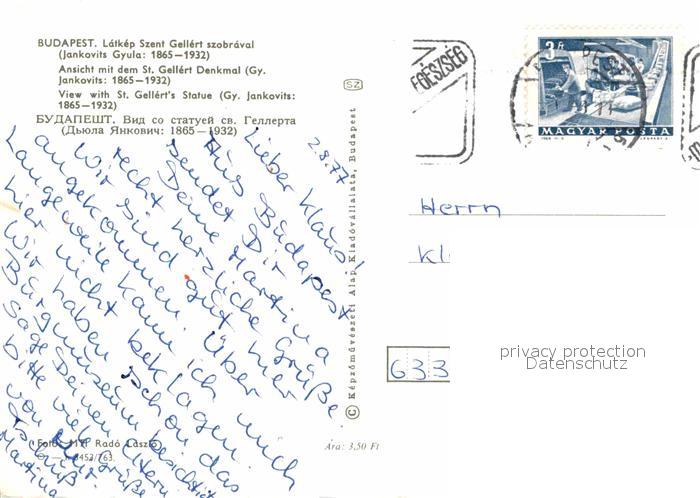 BUDAPEST. Látkép Szent Gellért szobrával
(Jankovits Gyula: 1865—1932)
Ansicht mit dem St. Gellért Denkmal (Gy.
Jankovits: 1865—1932)
View with St. Gellért's Statue (Gy. Jankovits:
1865—1932)
БУДАПЕШТ. Вид со статуей св. Геллерта
(Дьюла Янкович: 1865—1932)
SZ
2.8.77
Lieber Klaus!
Aus Budapest
sendet Dir
Deine Martina
recht herzliche Grüße.
Wir sind gut hier
angekommen. Über
Langeweile kann ich
hier nicht beklagen
mich
Wir haben schon das
Burgmuseum besichtigt
Sage Deinen Eltern
bitte viele Grüße
von mir
Martina
Foto: MTI Radó László
Ára: 3,50 Ft
© Képzőművészeti Alap Kiadóvállalata, Budapest
EGÉSZSÉG
3 Ft
MAGYAR POSTA
Herrn
Kl
633
privacy protection
Datenschutz